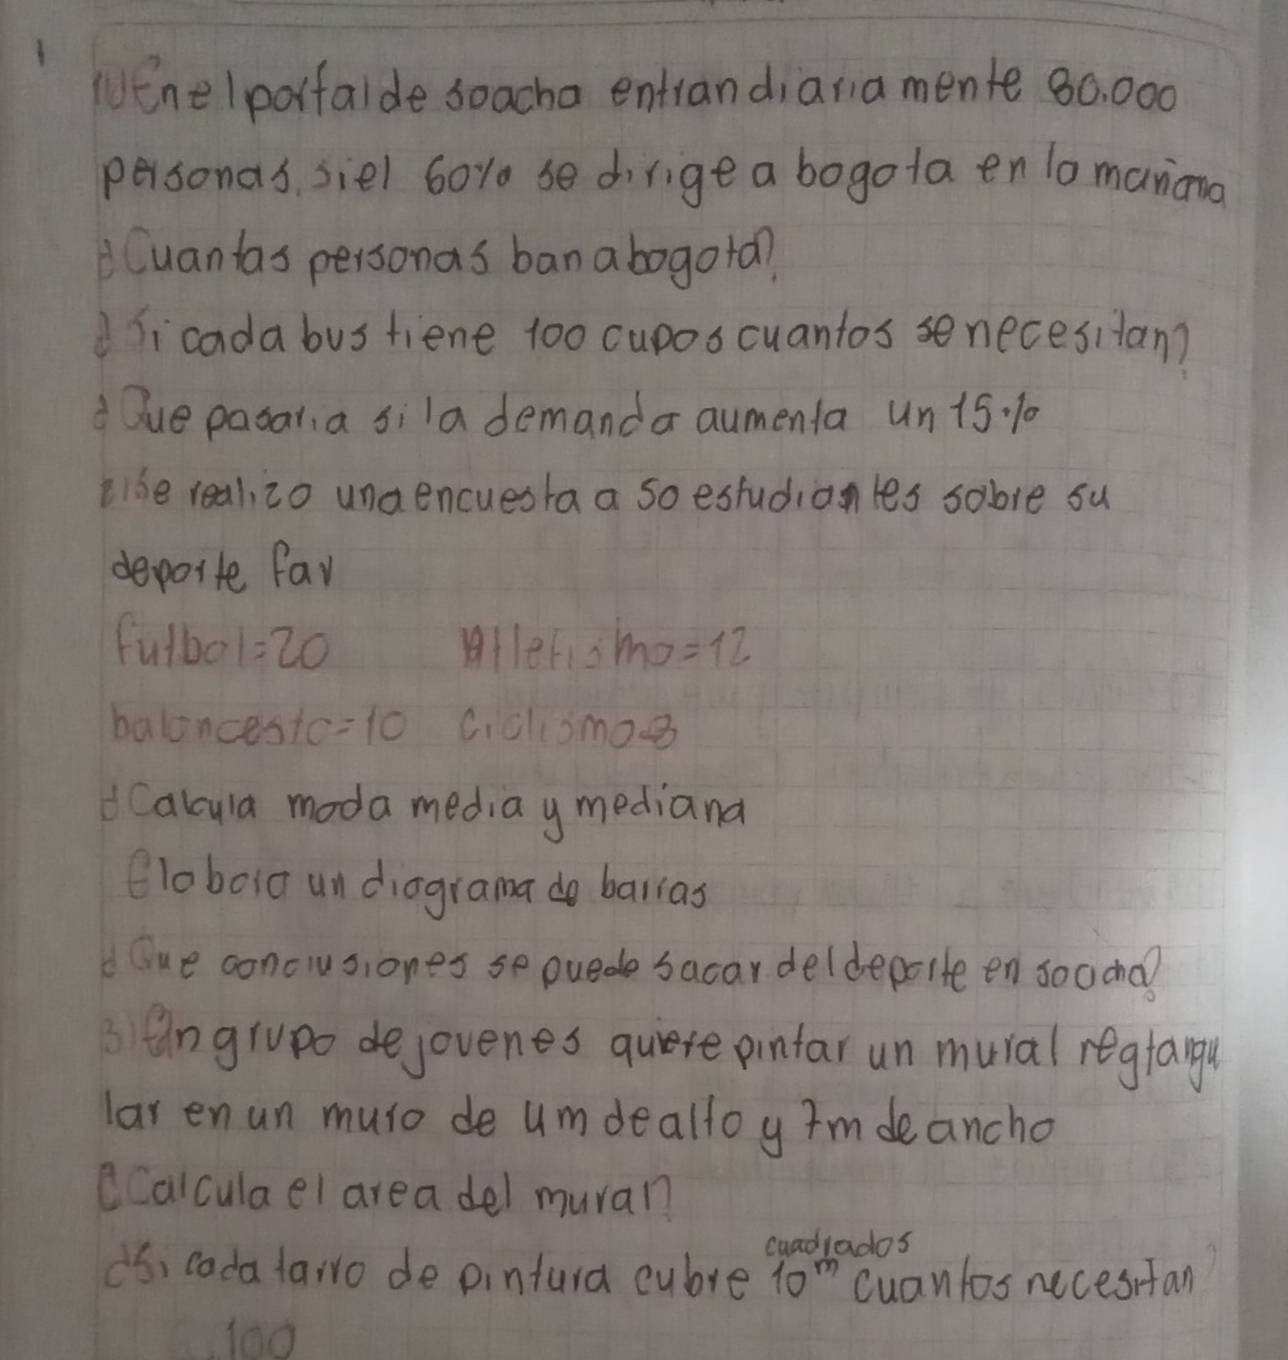 1) En el portal de soacha entran diariamente 80.000
personas, si el 60% se dirige a bogota en la mañana
Cuantas personas ban a bogota?
Si cada bus tiene 100 cupos cuantos se necesitan?
Que pasaria si la demanda aumenta un 15%
2) se realizo una encuesta a 50 estudiantes sobre su
deporte fav
futbol=20 Atletismo=12
baloncesto=10 ciclismo=8
Calcula moda media y mediana
Elabora un diagrama de barras
Que conclusiones se puede sacar del deporte en soacha?
3) Un grupo de jovenes quiere pintar un mural regtangu
lar en un muro de 4m de alto y 7m de ancho
Calcula el area del mural?
Si cada tarro de pintura cubre 10 m cuadrados cuantos necesitan?
100